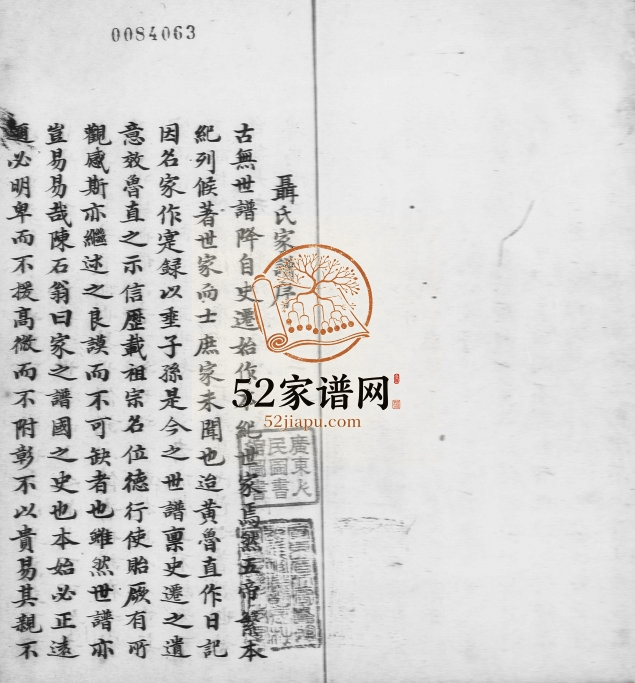 0084063
聶氏家譜序
古無世譜降自史遷始作 紀世家焉然五帝繫本
紀列候著世家而士庶家未聞也迨黃魯直作日記
因名家作寔録以垂子孫是今之世譜禀史遷之遺
意效魯直之示信歷載祖宗名位德行使貽厥有所
觀感斯亦繼述之良謨而不可缺者也雖然世譜亦
豈易易哉陳石翁曰家之譜國之史也本始必正遠
必明卑而不援高微而不附彰不以貴易其親不
52家谱网
52jiapu.com
廣東人
民圖書
館圖書